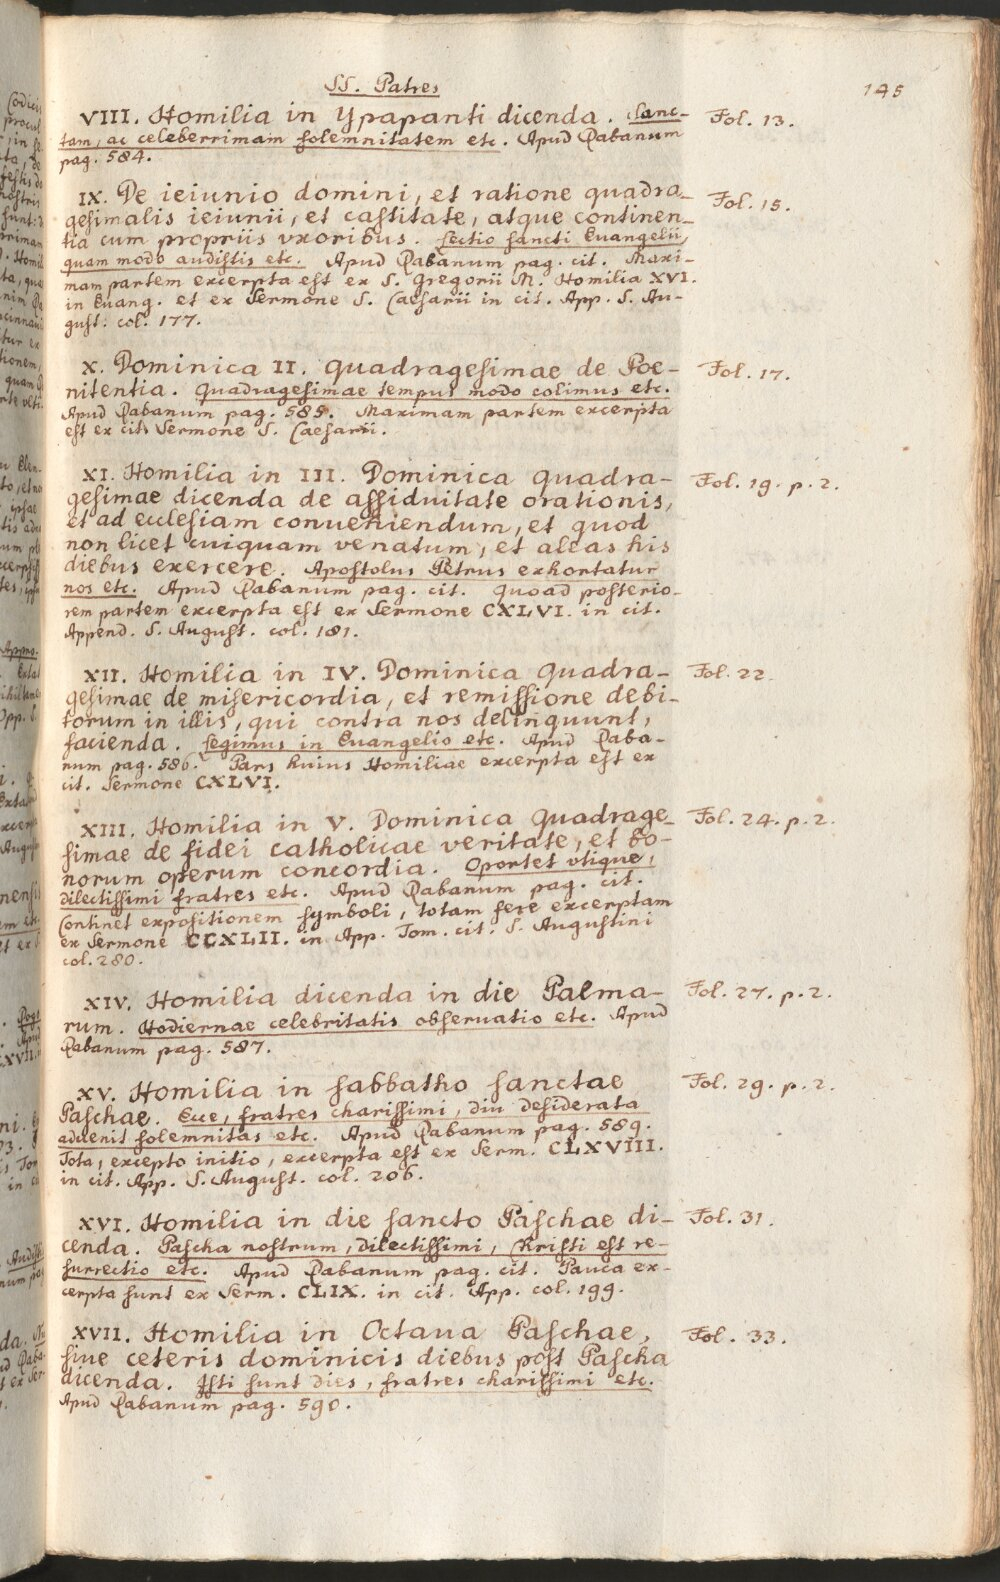 SS. Patres
145
VIII. Homilia in Ypapanti dicenda. Sanc-
Fol. 13.
tam, ac celeberrimam solemnitatem etc. Apud Rabanum
pag. 584.
IX. De ieiunio domini, et ratione quadra-
Fol. 15.
gesimalis ieiunii, et castitate, atque continen-
tia cum propriis vxoribus. Lectio sancti Euangelii,
quam modo audistis etc. Apud Rabanum pag. cit. Maxi-
mam partem excerpta est ex S. Gregorii M. Homilia XVI.
in Euang. et ex Sermone S. Caesarii in cit. App. S. Au-
gust: col. 177.
X. Dominica II. Quadragesimae de Poe-
Fol. 17.
nitentia. Quadragesimae tempus modo colimus etc.
Apud Rabanum pag. 585. Maximam partem excerpta
est ex cit. Sermone S. Caesarii.
XI. Homilia in III. Dominica Quadra-
Fol. 19. p. 2.
gesimae dicenda de assiduitate orationis,
et ad ecclesiam conueniendum, et quod
non licet cuiquam venatum, et aleas his
diebus exercere. Apostolus Petrus exhortatur
nos etc. Apud Rabanum pag. cit. Quoad posterio-
rem partem excerpta est ex Sermone CXLVI. in cit.
Append. S. August. col. 181.
XII. Homilia in IV. Dominica Quadra-
Fol. 22.
gesimae de misericordia, et remissione debi-
torum in illis, qui contra nos delinquunt,
facienda. Legimus in Euangelio etc. Apud Raba-
num pag. 586. Pars huius Homiliae excerpta est ex
cit. Sermone CXLVI.
XIII. Homilia in V. Dominica Quadrage-
Fol. 24. p. 2.
simae de fidei catholicae veritate, et bo-
norum operum concordia. Oportet vtique,
dilectissimi fratres etc. Apud Rabanum pag. cit.
Continet expositionem symboli, totam fere excerptam
ex Sermone CCXLII. in App. Tom. cit. S. Augustini
col. 280.
XIV. Homilia dicenda in die Palma-
Fol. 27. p. 2.
rum. Hodiernae celebritatis obseruatio etc. Apud
Rabanum pag. 587.
XV. Homilia in sabbatho sanctae
Fol. 29. p. 2.
Paschae. Ecce, fratres charissimi, diu desiderata
aduenit solemnitas etc. Apud Rabanum pag. 589.
Tota, excepto initio, excerpta est ex Serm. CLXVIII.
in cit. App. S. August. col. 206.
XVI. Homilia in die sancto Paschae di-
Fol. 31.
cenda. Pascha nostrum, dilectissimi, Kristi est re-
surrectio etc. Apud Rabanum pag. cit. Pauca ex-
cerpta sunt ex Serm. CLIX. in cit. App. col. 199.
XVII. Homilia in Octaua Paschae,
Fol. 33.
siue ceteris dominicis diebus post Pascha
dicenda. Isti sunt dies, fratres charissimi etc.
Apud Rabanum pag. 590.